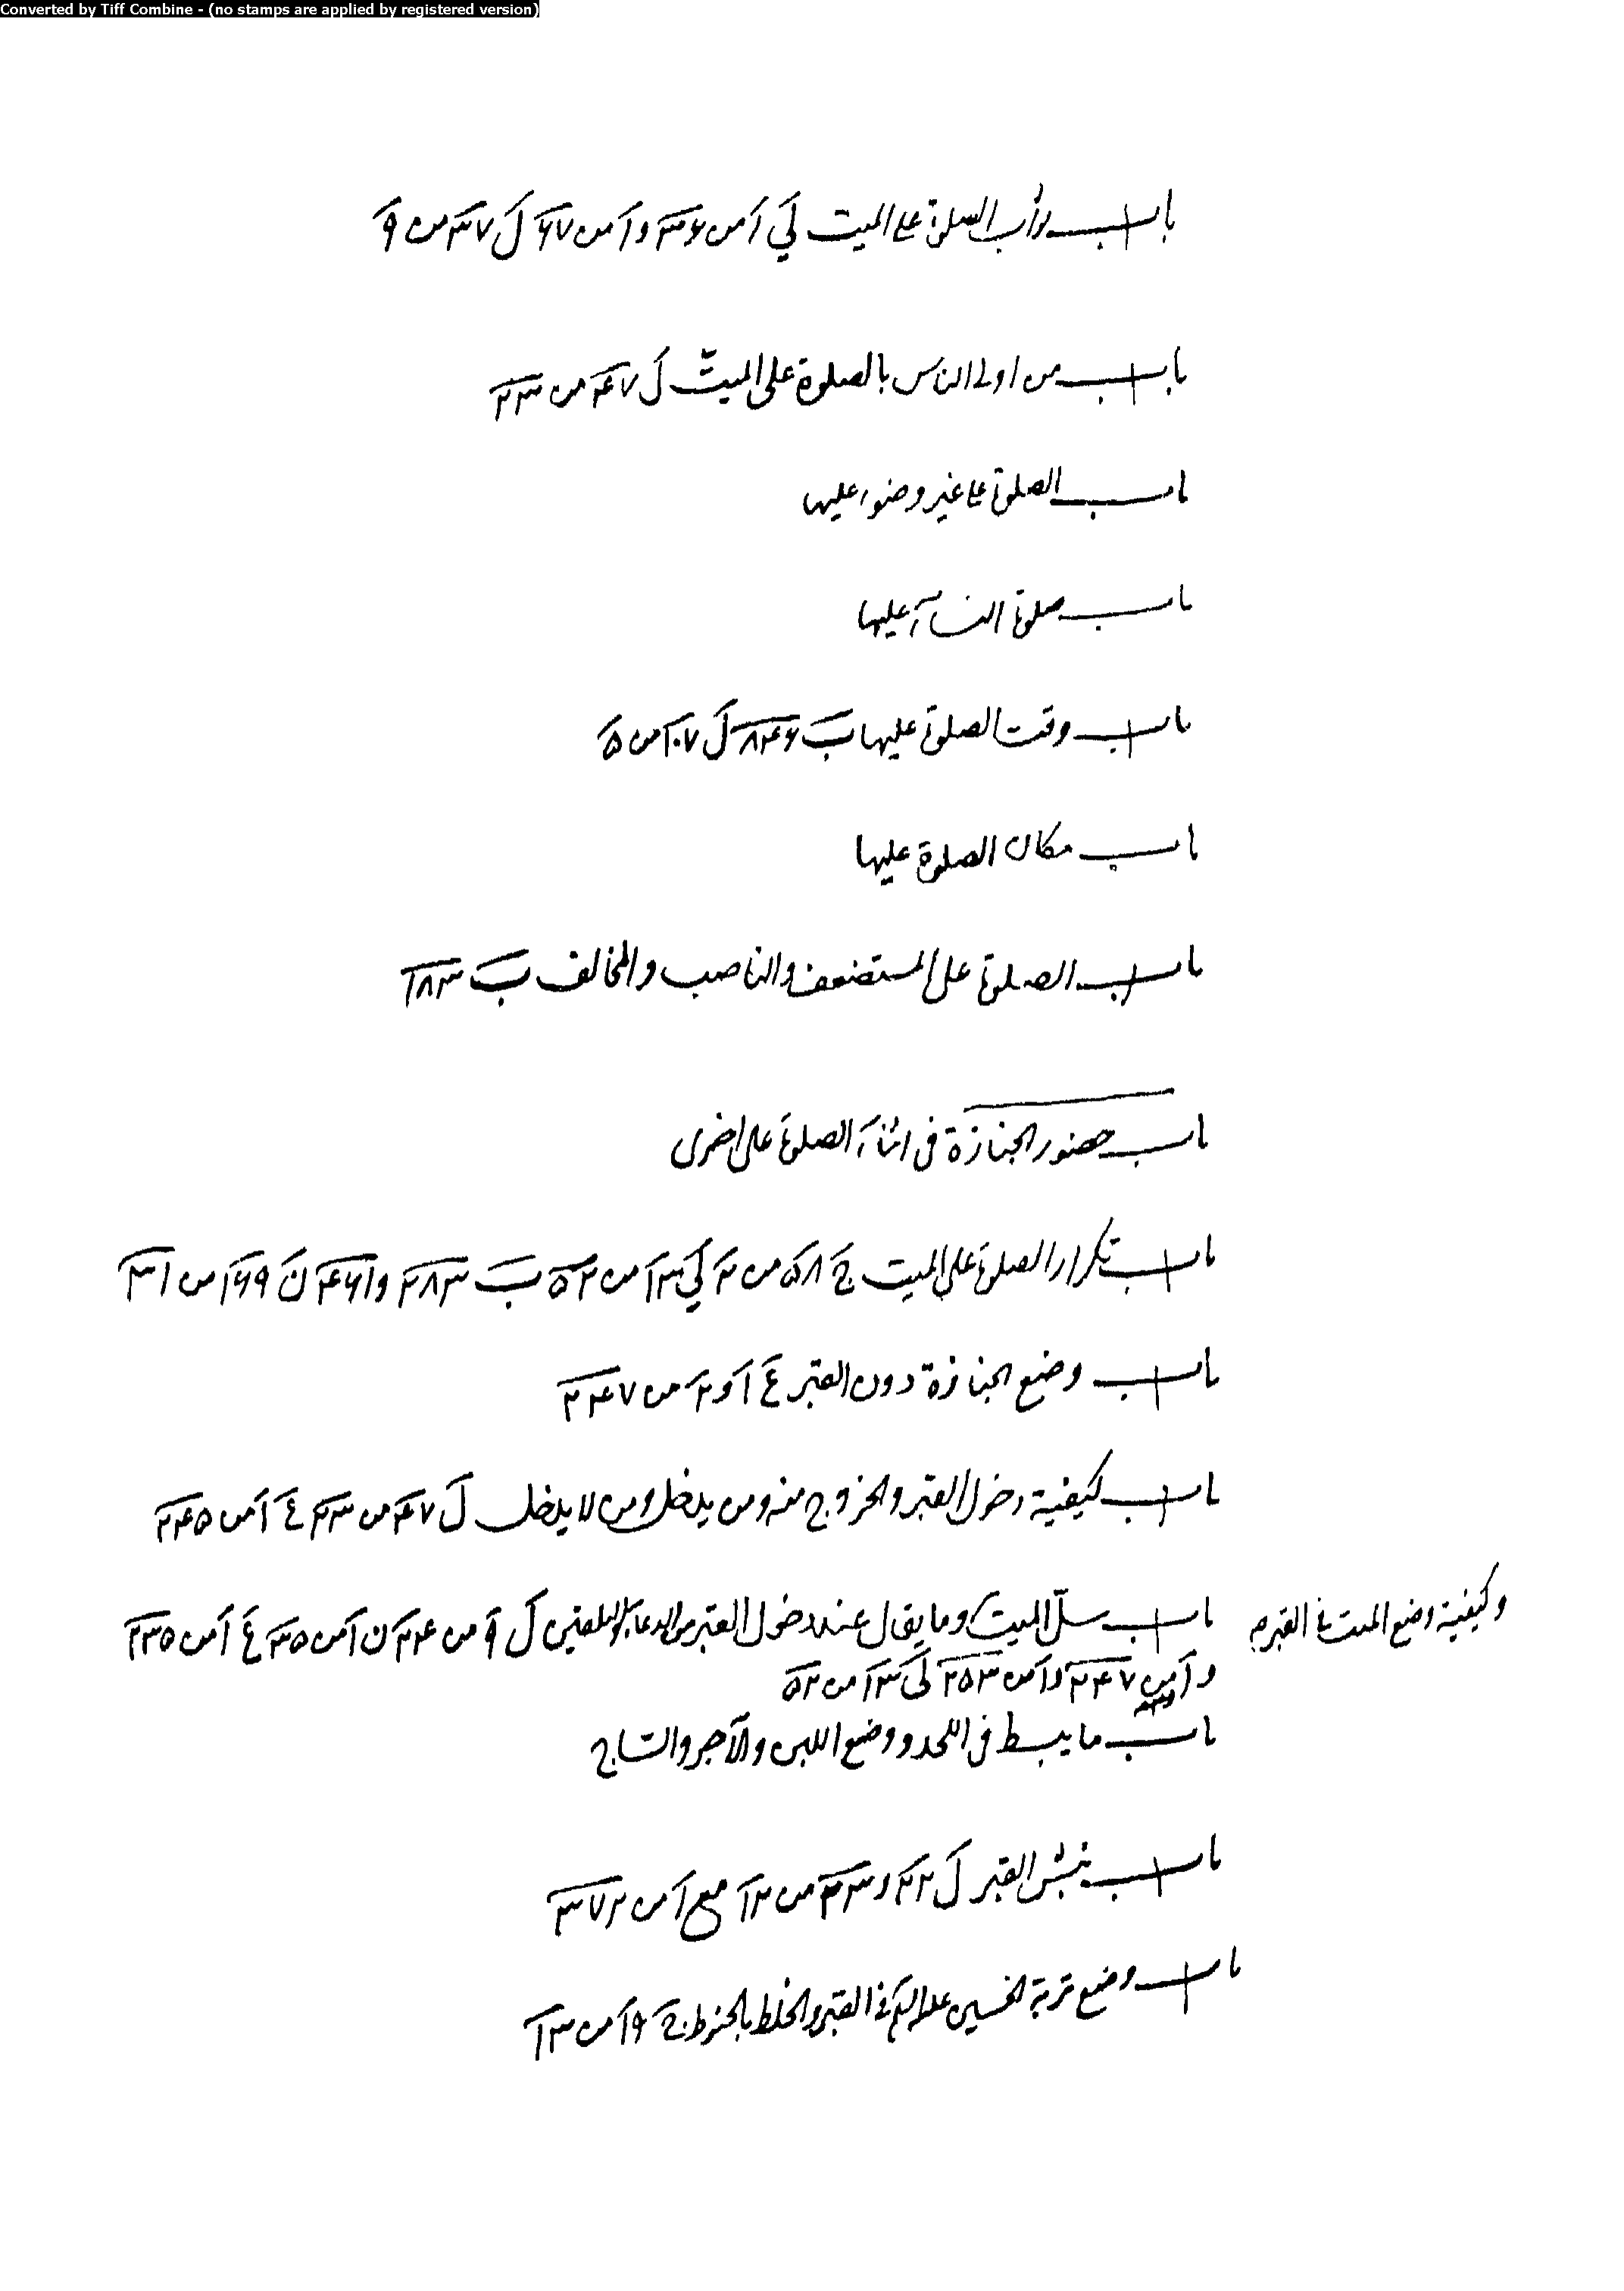 Converted by Tiff Combine - (no stamps are applied by registered version)
باب ثواب الصلوة على الميت لي ١ من ٣٦ و ١ من ٦٧ ل ٣٧ من ٩
باب من اولى الناس بالصلوة على الميت ل ٤٧ من ٢٣
باب الصلوة على غير وضوء عليها
باب صلوة النسآء عليها
باب وقت الصلوة عليها ب ٨٤٦ ل ١٠٧ من ٥
باب مكان الصلوة عليها
باب الصلوة على المستضعف والناصب والمخالف ب ١٨٣
باب حضور الجنازة فى اثنآء الصلوة على اخرى
باب تكرار الصلوة على الميت ج ٥٨ من ٢ لي ١٣ من ٥٢ ب ٢٨٣ و ٤٦١ ن ١٦٩ من ٣١
باب وضع الجنازة دون القبر ع ١ و ٢ من ٢٤٧
باب كيفية دخول القبر والخروج منه ومن يدخل ومن لا يدخل ل ٤٧ من ٢٣ ع ١ من ٢٤٥
باب سلّ الميت وما يقال عند دخول القبر من الدعاء والتلقين ل ٩ من ٢٤ ن ١ من ٣٥ ع ١ من ٢٣٥
وكيفية وضع الميت في القبر
و ١ من ٢٤٧ و ١ من ٢٥٣ لي ١٣ من ٥٢
باب ما يبسط فى اللحد و وضع اللبن والآجر والساج
باب نبش القبر ل ٢٢ و ٢٣ من ١٢ مع ١ من ٣٧٢
باب وضع تربة الحسين عليه السلم في القبر والخلط بالحنوط ج ١٩ من ١٣